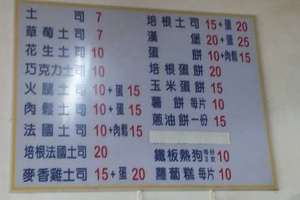 土司 7
草莓土司 7
花生土司 10
巧克力土司 10
火腿土司 10+蛋 15
肉鬆土司 10+蛋 15
法國土司 10+肉鬆 15
培根法國土司 20
麥香雞土司 15+蛋 20
培根土司 15+蛋 20
漢堡 20+蛋 25
蛋餅 10+肉鬆 15
培根蛋餅 20
玉米蛋餅 15
薯餅 每片 10
蔥油餅一份 15
鐵板熱狗 10
蘿蔔糕 每片 10